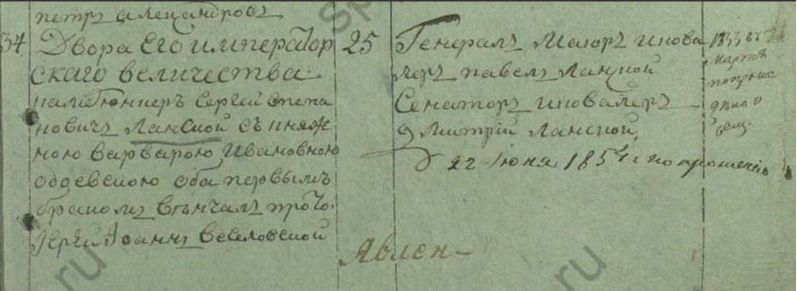 петръ александровъ
34 Двора Его император
скаго величества
камеюнкеръ Сергей степа
новичъ Ланской съ княж
ною варварою Ивановною
одоевскою оба первымъ
бракомъ венчалъ прото
иерей Иоаннъ веселовской
25
Генералъ Маиоръ и кова
леръ павелъ Ланской
Сенаторъ и ковалеръ
Дмитрий Ланской
22 Июня 185 по прошению
Явлен
1833
марта
дано